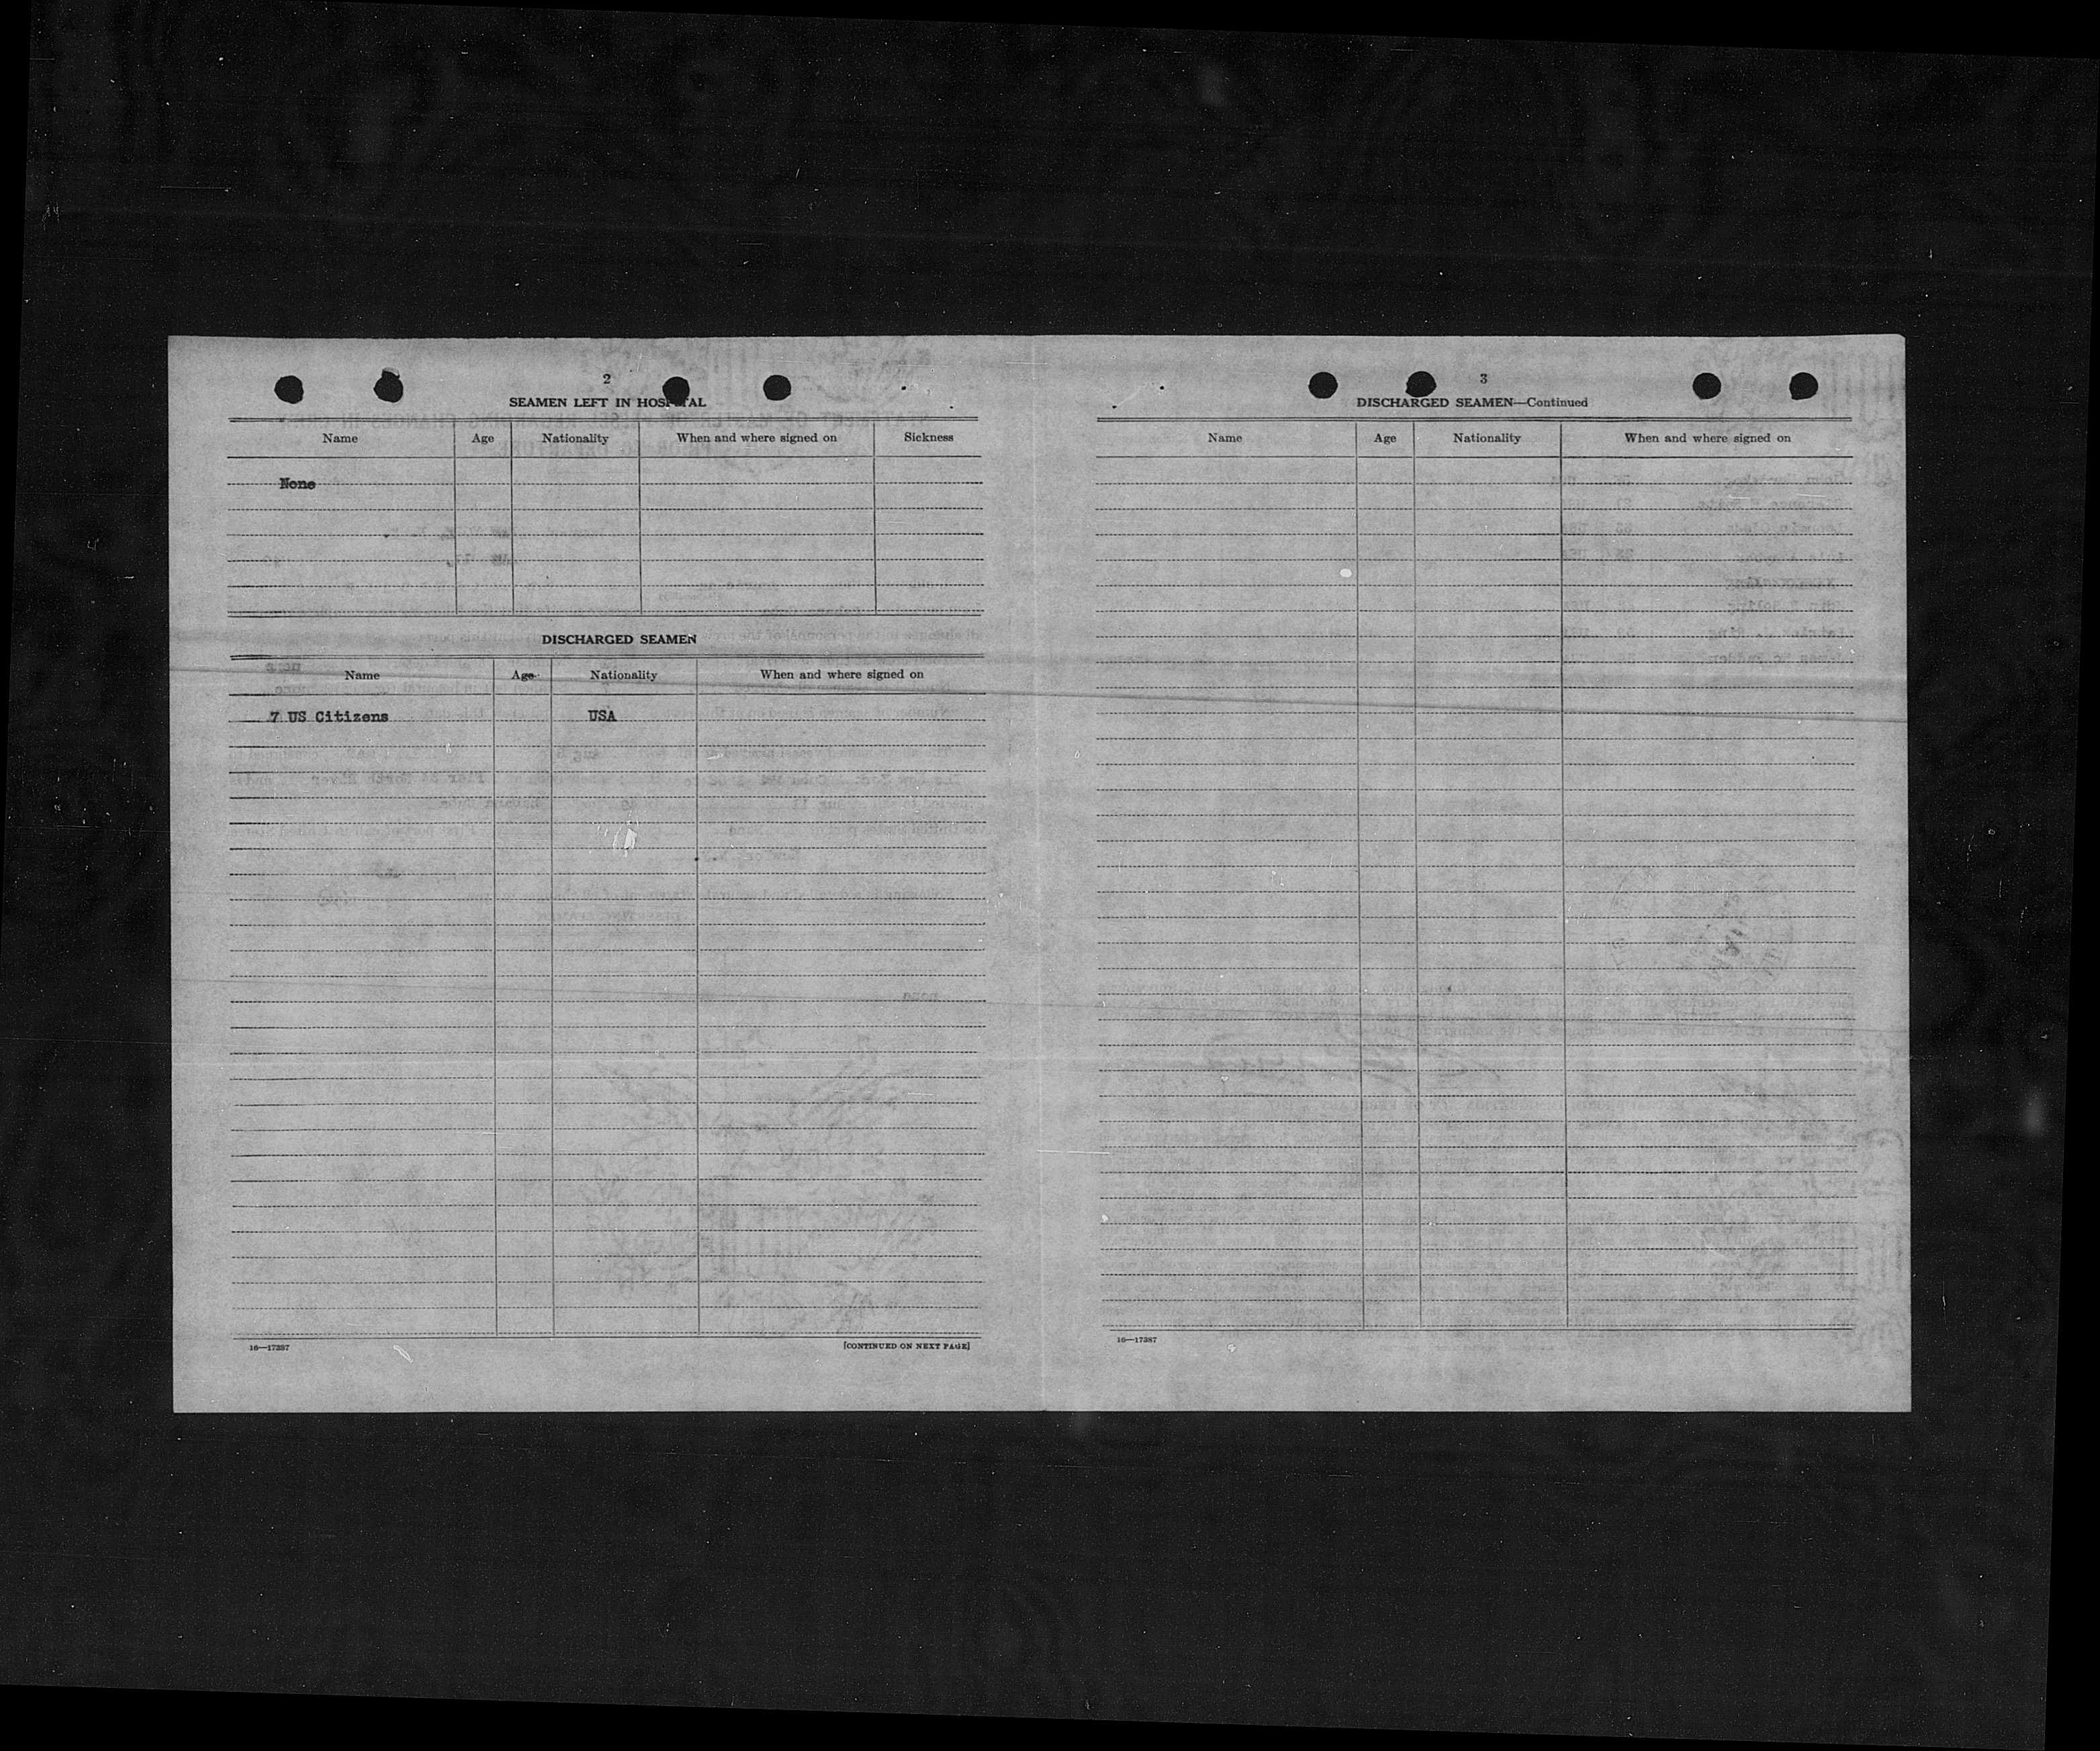 2
SEAMEN LEFT IN HOSPITAL
Name Age Nationality When and where signed on Sickness
None
DISCHARGED SEAMEN
Name Age Nationality When and where signed on
7 US Citizens USA
16—17387 [CONTINUED ON NEXT PAGE]
3
DISCHARGED SEAMEN—Continued
Name Age Nationality When and where signed on
16—17387